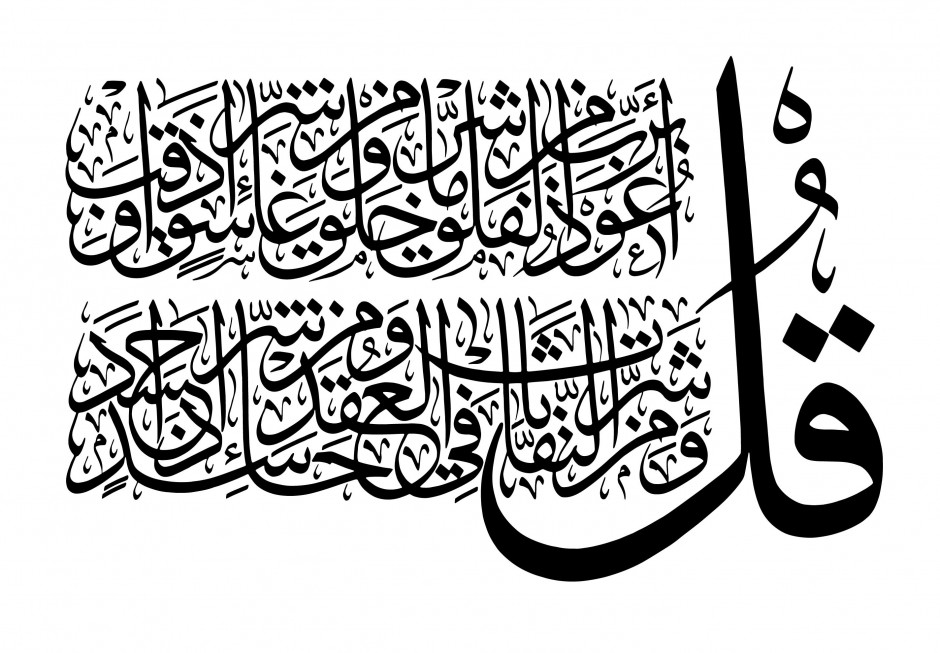 قُلْ أَعُوذُ بِرَبِّ الْفَلَقِ مِن شَرِّ مَا خَلَقَ وَمِن شَرِّ غَاسِقٍ إِذَا وَقَبَ
وَمِن شَرِّ النَّفَّاثَاتِ فِي الْعُقَدِ وَمِن شَرِّ حَاسِدٍ إِذَا حَسَدَ